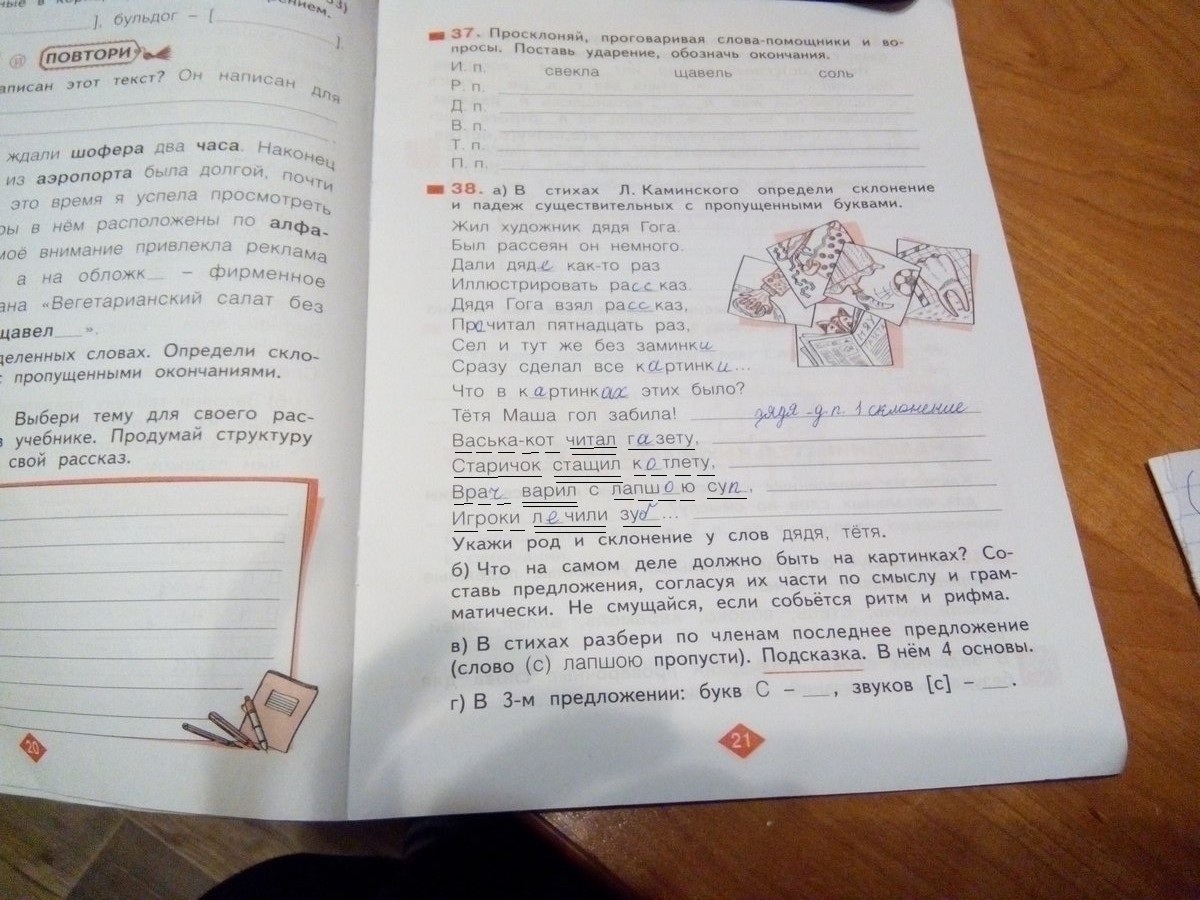 ], бульдог – [
].
ПОВТОРИ
написан этот текст? Он написан для
ждали шофера два часа. Наконец
из аэропорта была долгой, почти
это время я успела просмотреть
ры в нём расположены по алфа-
моё внимание привлекла реклама
а на обложк__ – фирменное
«Вегетарианский салат без
щавел__».
деленных словах. Определи скло-
с пропущенными окончаниями.
Выбери тему для своего рас-
в учебнике. Продумай структуру
свой рассказ.
20
37. Просклоняй, проговаривая слова-помощники и во-
просы. Поставь ударение, обозначь окончания.
И. п. свекла щавель соль
Р. п.
Д. п.
В. п.
Т. п.
П. п.
38. а) В стихах Л. Каминского определи склонение
и падеж существительных с пропущенными буквами.
Жил художник дядя Гога.
Был рассеян он немного.
Дали дяде как-то раз
Иллюстрировать рассказ.
Дядя Гога взял рассказ,
Прочитал пятнадцать раз,
Сел и тут же без заминки
Сразу сделал все картинки...
Что в картинках этих было?
Тётя Маша гол забила! дядя - д.п. 1 склонение
Васька-кот читал газету,
Старичок стащил котлету,
Врач варил с лапшою суп,
Игроки лечили зуб...
Укажи род и склонение у слов дядя, тётя.
б) Что на самом деле должно быть на картинках? Со-
ставь предложения, согласуя их части по смыслу и грам-
матически. Не смущайся, если собьётся ритм и рифма.
в) В стихах разбери по членам последнее предложение
(слово (с) лапшою пропусти). Подсказка. В нём 4 основы.
г) В 3-м предложении: букв С – __, звуков [с] – __.
21